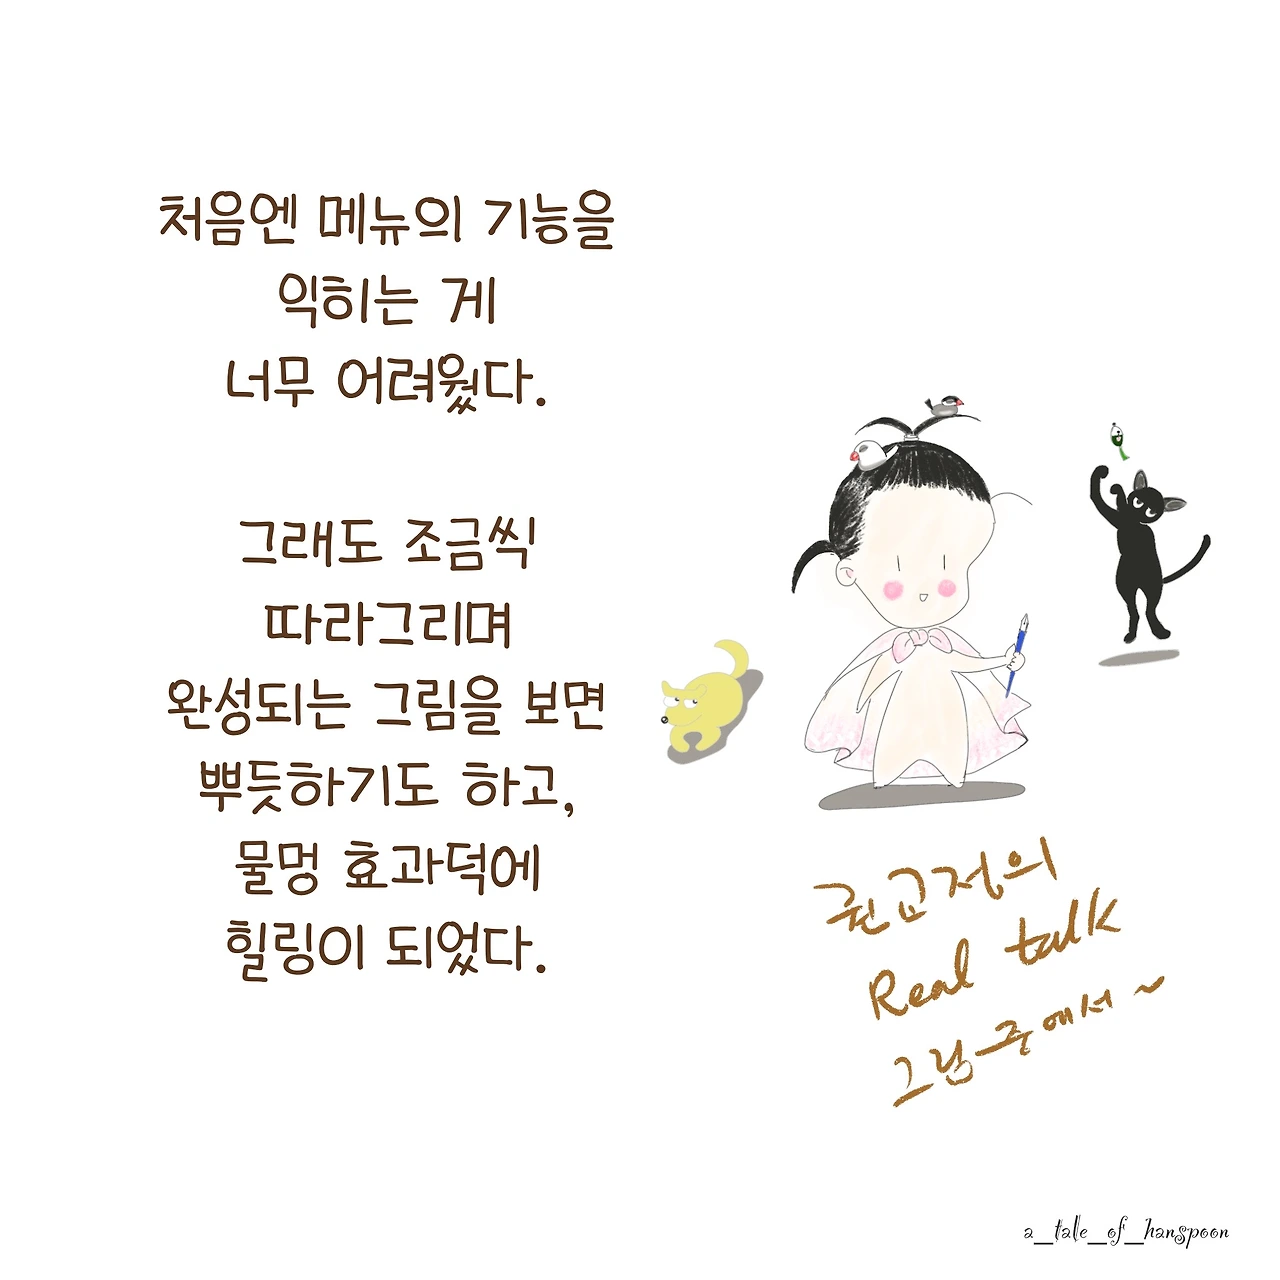 처음엔 메뉴의 기능을
익히는 게
너무 어려웠다.
그래도 조금씩
따라그리며
완성되는 그림을 보면
뿌듯하기도 하고,
물멍 효과덕에
힐링이 되었다.
권교정의
Real talk
그림 중에서~
a_tale_of_hanspoon